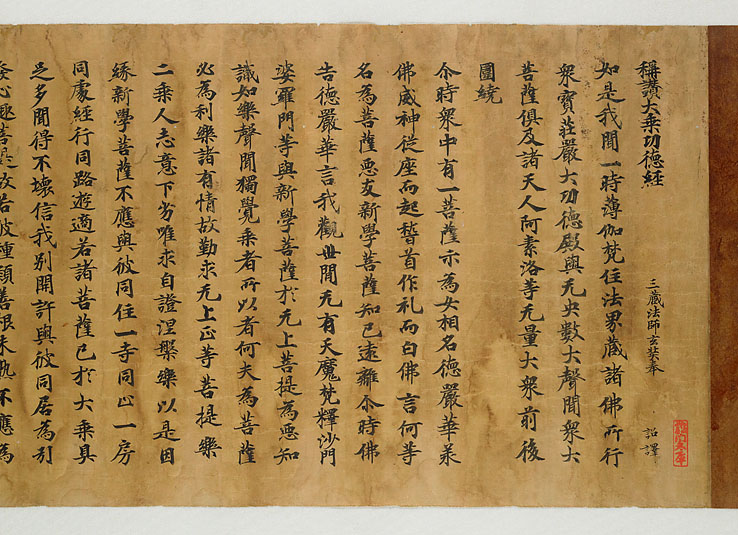 稱讚大乘功德經
三藏法師玄奘奉 詔譯
如是我聞一時薄伽梵住法界藏諸佛所行
衆寶莊嚴大功德殿與无央數大聲聞衆大
菩薩俱及諸天人阿素洛等无量大衆前後
圍繞
尒時衆中有一菩薩示為女相名德嚴華承
佛威神從座而起稽首作礼而白佛言何等
名為菩薩惡友新學菩薩知已遠離尒時佛
告德嚴華言我觀世間无有天魔梵釋沙門
婆羅門等與新學菩薩於无上菩提為惡知
識如樂聲聞獨覺乘者所以者何夫為菩薩
必為利樂諸有情故勤求无上正等菩提樂
二乘人志意下劣唯求自證涅槃樂以是因
緣新學菩薩不應與彼同住一寺同止一房
同處經行同路遊適若諸菩薩已於大乘具
足多聞得不壞信我別開許與彼同居為引
發心趣菩提故若彼種類善根未熟不應為